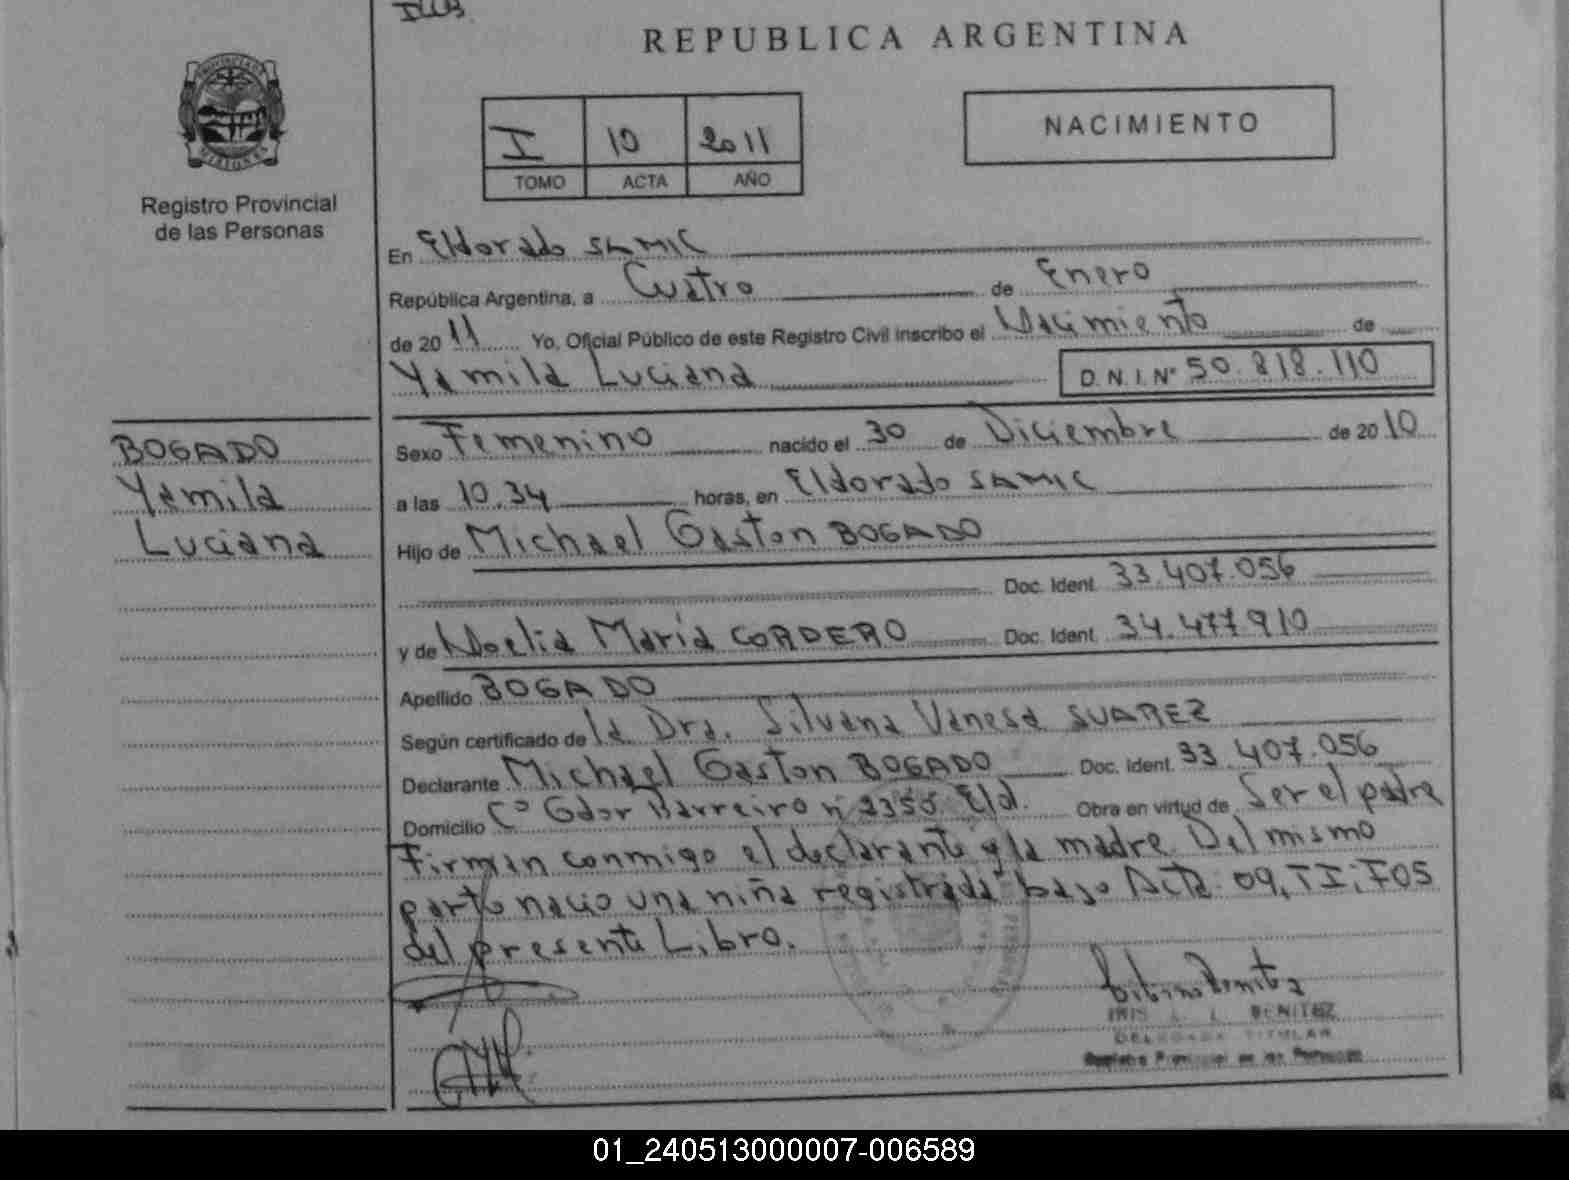 REPUBLICA ARGENTINA
PROVINCIA DE MISIONES
Registro Provincial
de las Personas
I 10 2011
TOMO ACTA AÑO
NACIMIENTO
En Eldorado SAMIC
República Argentina, a Cuatro de Enero
de 2011 Yo, Oficial Público de este Registro Civil inscribo el Nacimiento de
Yamila Luciana D.N.I. Nº 50.818.110
BOGADO
Yamila
Luciana
Sexo Femenino nacido el 30 de Diciembre de 2010
a las 10.34 horas, en Eldorado SAMIC
Hijo de Michael Gaston BOGADO
Doc. Ident. 33.407.056
y de Noelia María CORDERO Doc. Ident. 34.477.910
Apellido BOGADO
Según certificado de la Dra. Silvana Vanesa SUAREZ
Declarante Michael Gaston BOGADO Doc. Ident. 33.407.056
Domicilio Cº Gdor Barreiro nº 2355 Eld. Obra en virtud de Ser el padre
Firman conmigo el declarante y la madre. Del mismo
parto nacio una niña registrada bajo Acta: 09, TI, F05
del presente Libro.
IRIS L. L. BENITEZ
DELEGADA TITULAR
Registro Provincial de las Personas
01_240513000007-006589